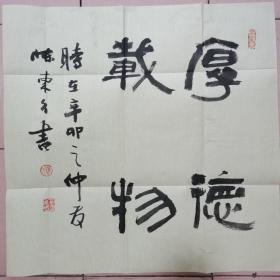 厚德
載物
時在辛卯之仲夏
陳東
書